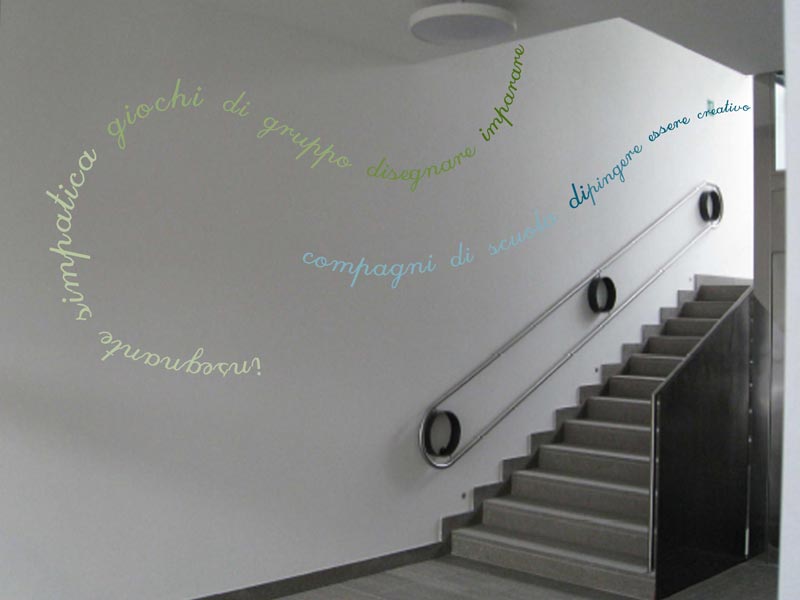 insegnante simpatica giochi di gruppo disegnare imparare
compagni di scuola dipingere essere creativo